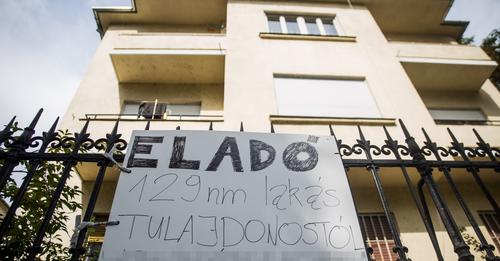 ELADÓ
129nm lakás
TULAJDONOSTÓL